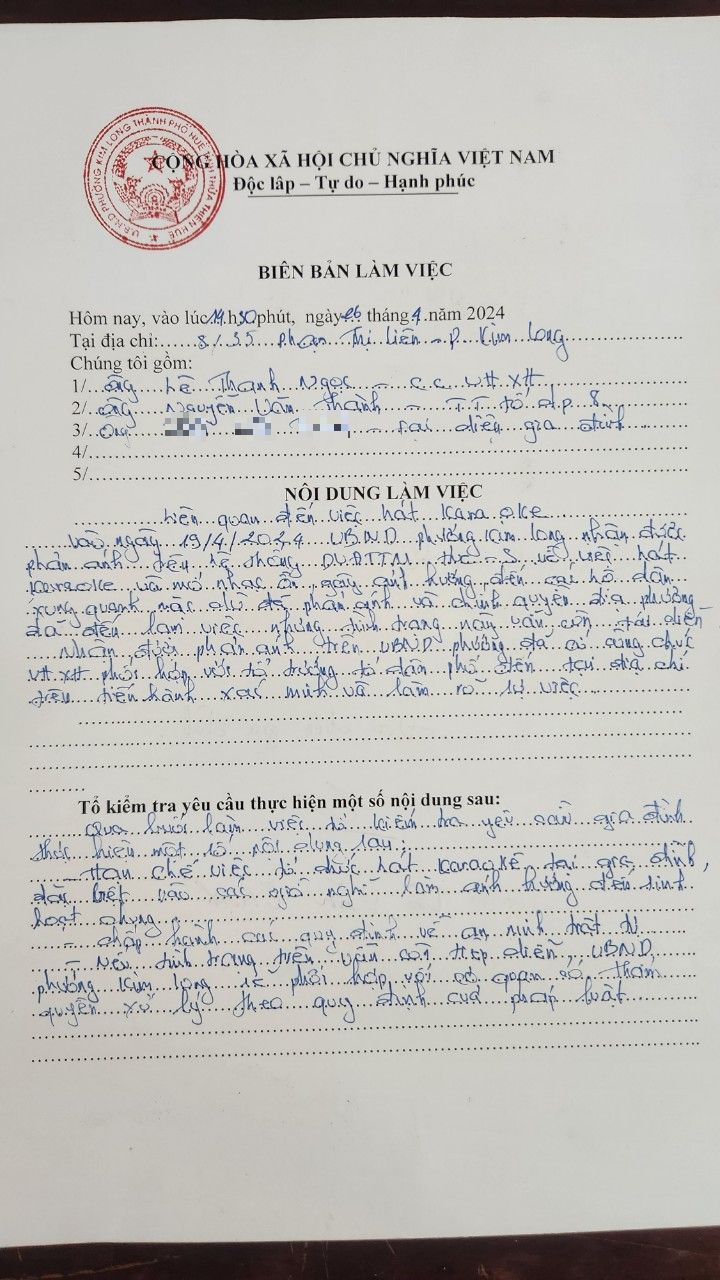 U.B.N.D PHƯỜNG KIM LONG THÀNH PHỐ HUẾ TỈNH THỪA THIÊN HUẾ
CỘNG HÒA XÃ HỘI CHỦ NGHĨA VIỆT NAM
Độc lâp – Tự do – Hạnh phúc
BIÊN BẢN LÀM VIỆC
Hôm nay, vào lúc 14.h30phút, ngày 26 tháng 4 năm 2024
Tại địa chỉ: 8/35 Phạm Thị Liên - P. Kim Long
Chúng tôi gồm:
1/ Ông Lê Thanh Ngọc - C.C VH.XH
2/ Ông Nguyễn Văn Thành - TT tổ d.p 8
3/ Ông - Đại diện gia đình
4/
5/
NỘI DUNG LÀM VIỆC
Liên quan đến việc hát Kara oke
Vào ngày 19/4/2024 UBND phường Kim Long nhận được
phản ánh trên hệ thống DVĐTTM thẻ -S về việc hát
Karaoke và mở nhạc ồn gây ảnh hưởng đến các hộ dân
xung quanh mặc dù đã phản ánh và chính quyền địa phương
đã đến làm việc nhưng tình trạng này vẫn còn tái diễn
Nhận được phản ánh trên UBND phường đã cử công chức
VH.XH phối hợp với tổ trưởng tổ dân phố đến tại địa chỉ
trên tiến hành xác minh và làm rõ sự việc
Tổ kiểm tra yêu cầu thực hiện một số nội dung sau:
Qua buổi làm việc tổ kiểm tra yêu cầu gia đình
thực hiện một số nội dung sau:
- Hạn chế việc tổ chức hát Karaoke tại gia đình,
đặc biệt vào các giờ nghỉ làm ảnh hưởng đến sinh
hoạt chung
- Chấp hành các quy định về an ninh trật tự
- Nếu tình trạng trên vẫn còn tiếp diễn, UBND
phường Kim Long sẽ phối hợp với cơ quan có thẩm
quyền xử lý theo quy định của pháp luật